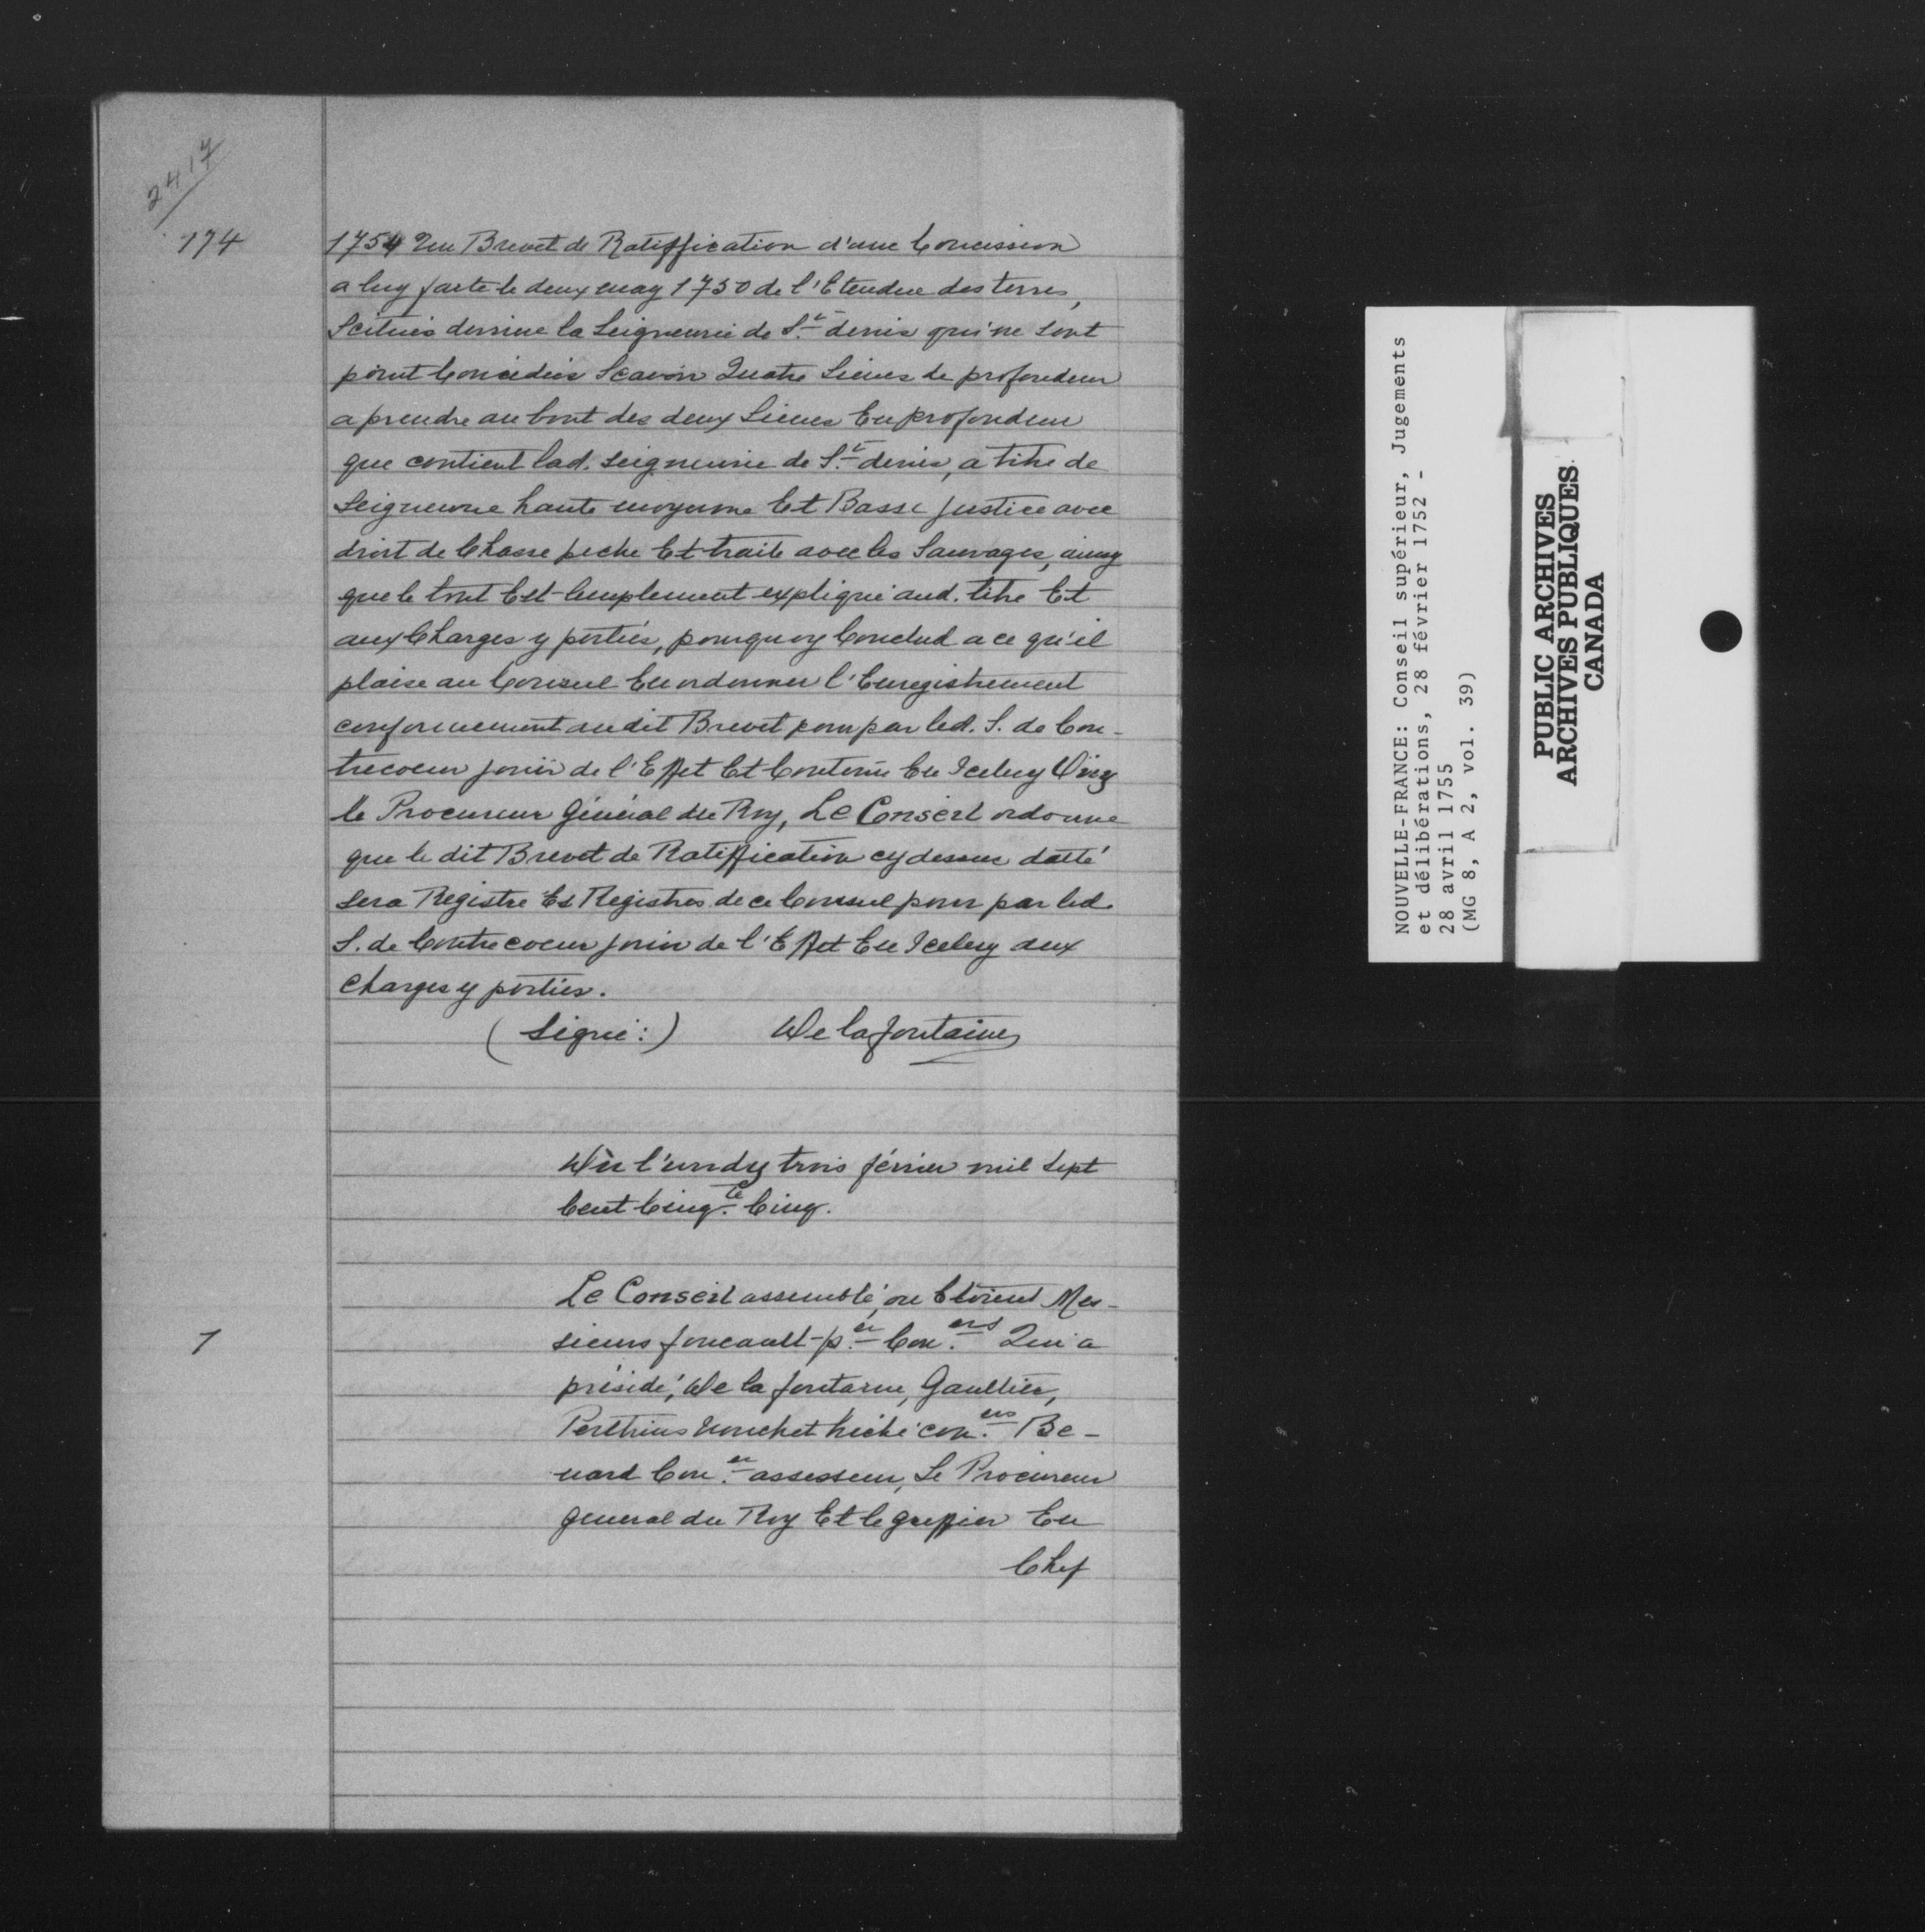 2417
174
1754 Un Brevet de Ratiffication d'une Concession
a luy faite le deux may 1750 de l'Etendue des terres,
Scituées derriere la Seigneurie de St. denis qui ne sont
point Concédées Scavoir Quatre Lieues de profondeur
a prendre au bout des deux Lieues En profondeur
que contient lad. seigneurie de St. denis, a titre de
Seigneurie haute moyenne Et Basse justice avec
droit de Chasse peche Et traite avec les Sauvages, ainsy
que le tout Est amplement expliqué aud. titre Et
aux Charges y portées, pourquoy Conclud a ce qu'il
plaise au Conseil En ordonner l'Enregistrement
conformement audit Brevet pour par led. S. de Con-
trecoeur jouir de l'Effet Et Contenu En Iceluy Oüy
le Procureur Général du Roy, Le Conseil ordonne
que le dit Brevet de Ratiffication cy dessus datté
sera Registré Es Registres de ce Conseil pour par led.
S. de Contrecoeur jouir de l'Effet En Iceluy aux
Charges y portées.
(Signé:) De lafontaine
Du l'undy trois février mil sept
Cent Cinq.te Cinq.
Le Conseil assemblé, ou Etoient Mes-
1
sieurs foucault p.er Con.ers Qui a
présidé, De la fontaine, Gaultier,
Perthuis Nouchet hiché con.ers Be-
nard Con.er assesseur, Le Procureur
general du Roy Et le greffier En
Chef
NOUVELLE-FRANCE: Conseil supérieur, Jugements
et délibérations, 28 février 1752 -
28 avril 1755
(MG 8, A 2, vol. 39)
PUBLIC ARCHIVES
ARCHIVES PUBLIQUES
CANADA